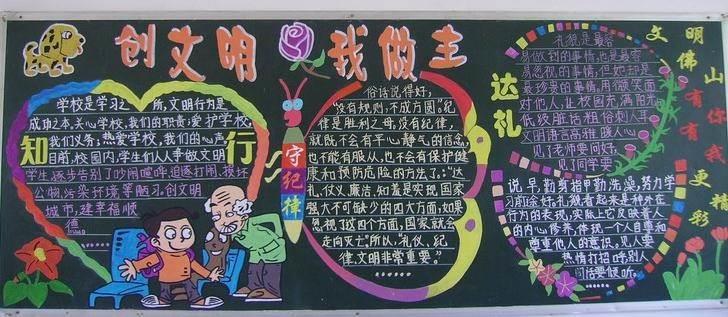 创文明 我做主
知行
学校是学习之所,文明行为是
成功之本,关心学校,我们的职责;爱护学校,
我们义务;热爱学校,我们的心声
目前,校园内,学生们人人争做文明
学生,逐步告别了吵闹喧哗,追逐打闹,损坏
公物,污染环境等陋习。创文明
城市,建幸福顺
德
守纪律
俗话说得好,
“没有规则,不成方圆。”纪
律是胜利之母,没有纪律,
就既不会有平心静气的信念,
也不能有服从,也不会有保护健
康和预防危险的方法了。”“达
礼、仪义、廉洁、知羞是实现国家
强大不可缺少的四大方面,如果
忽视了这四个方面,国家就会
走向灭亡”所以,礼仪、纪
律、文明非常重要。”
达礼
礼貌是最容
易做到的事情,也是最容
易忽视的事情,但她却是
最珍贵的事情,用微笑面
对他人,让校园充满阳光
低级脏话粗俗刺人耳
文明语言高雅暖人心
见了老师要问好,
见了同学要
说早,勤剪指甲勤洗澡,努力学
习前途好。礼貌看起来是种外在
行为的表现,实际上它反映着人
的内心修养,体现一个人自尊和
尊重他人的意识,见人要
热情打招呼,别人
问话要倾听。
文明佛山
有你有我
更精彩